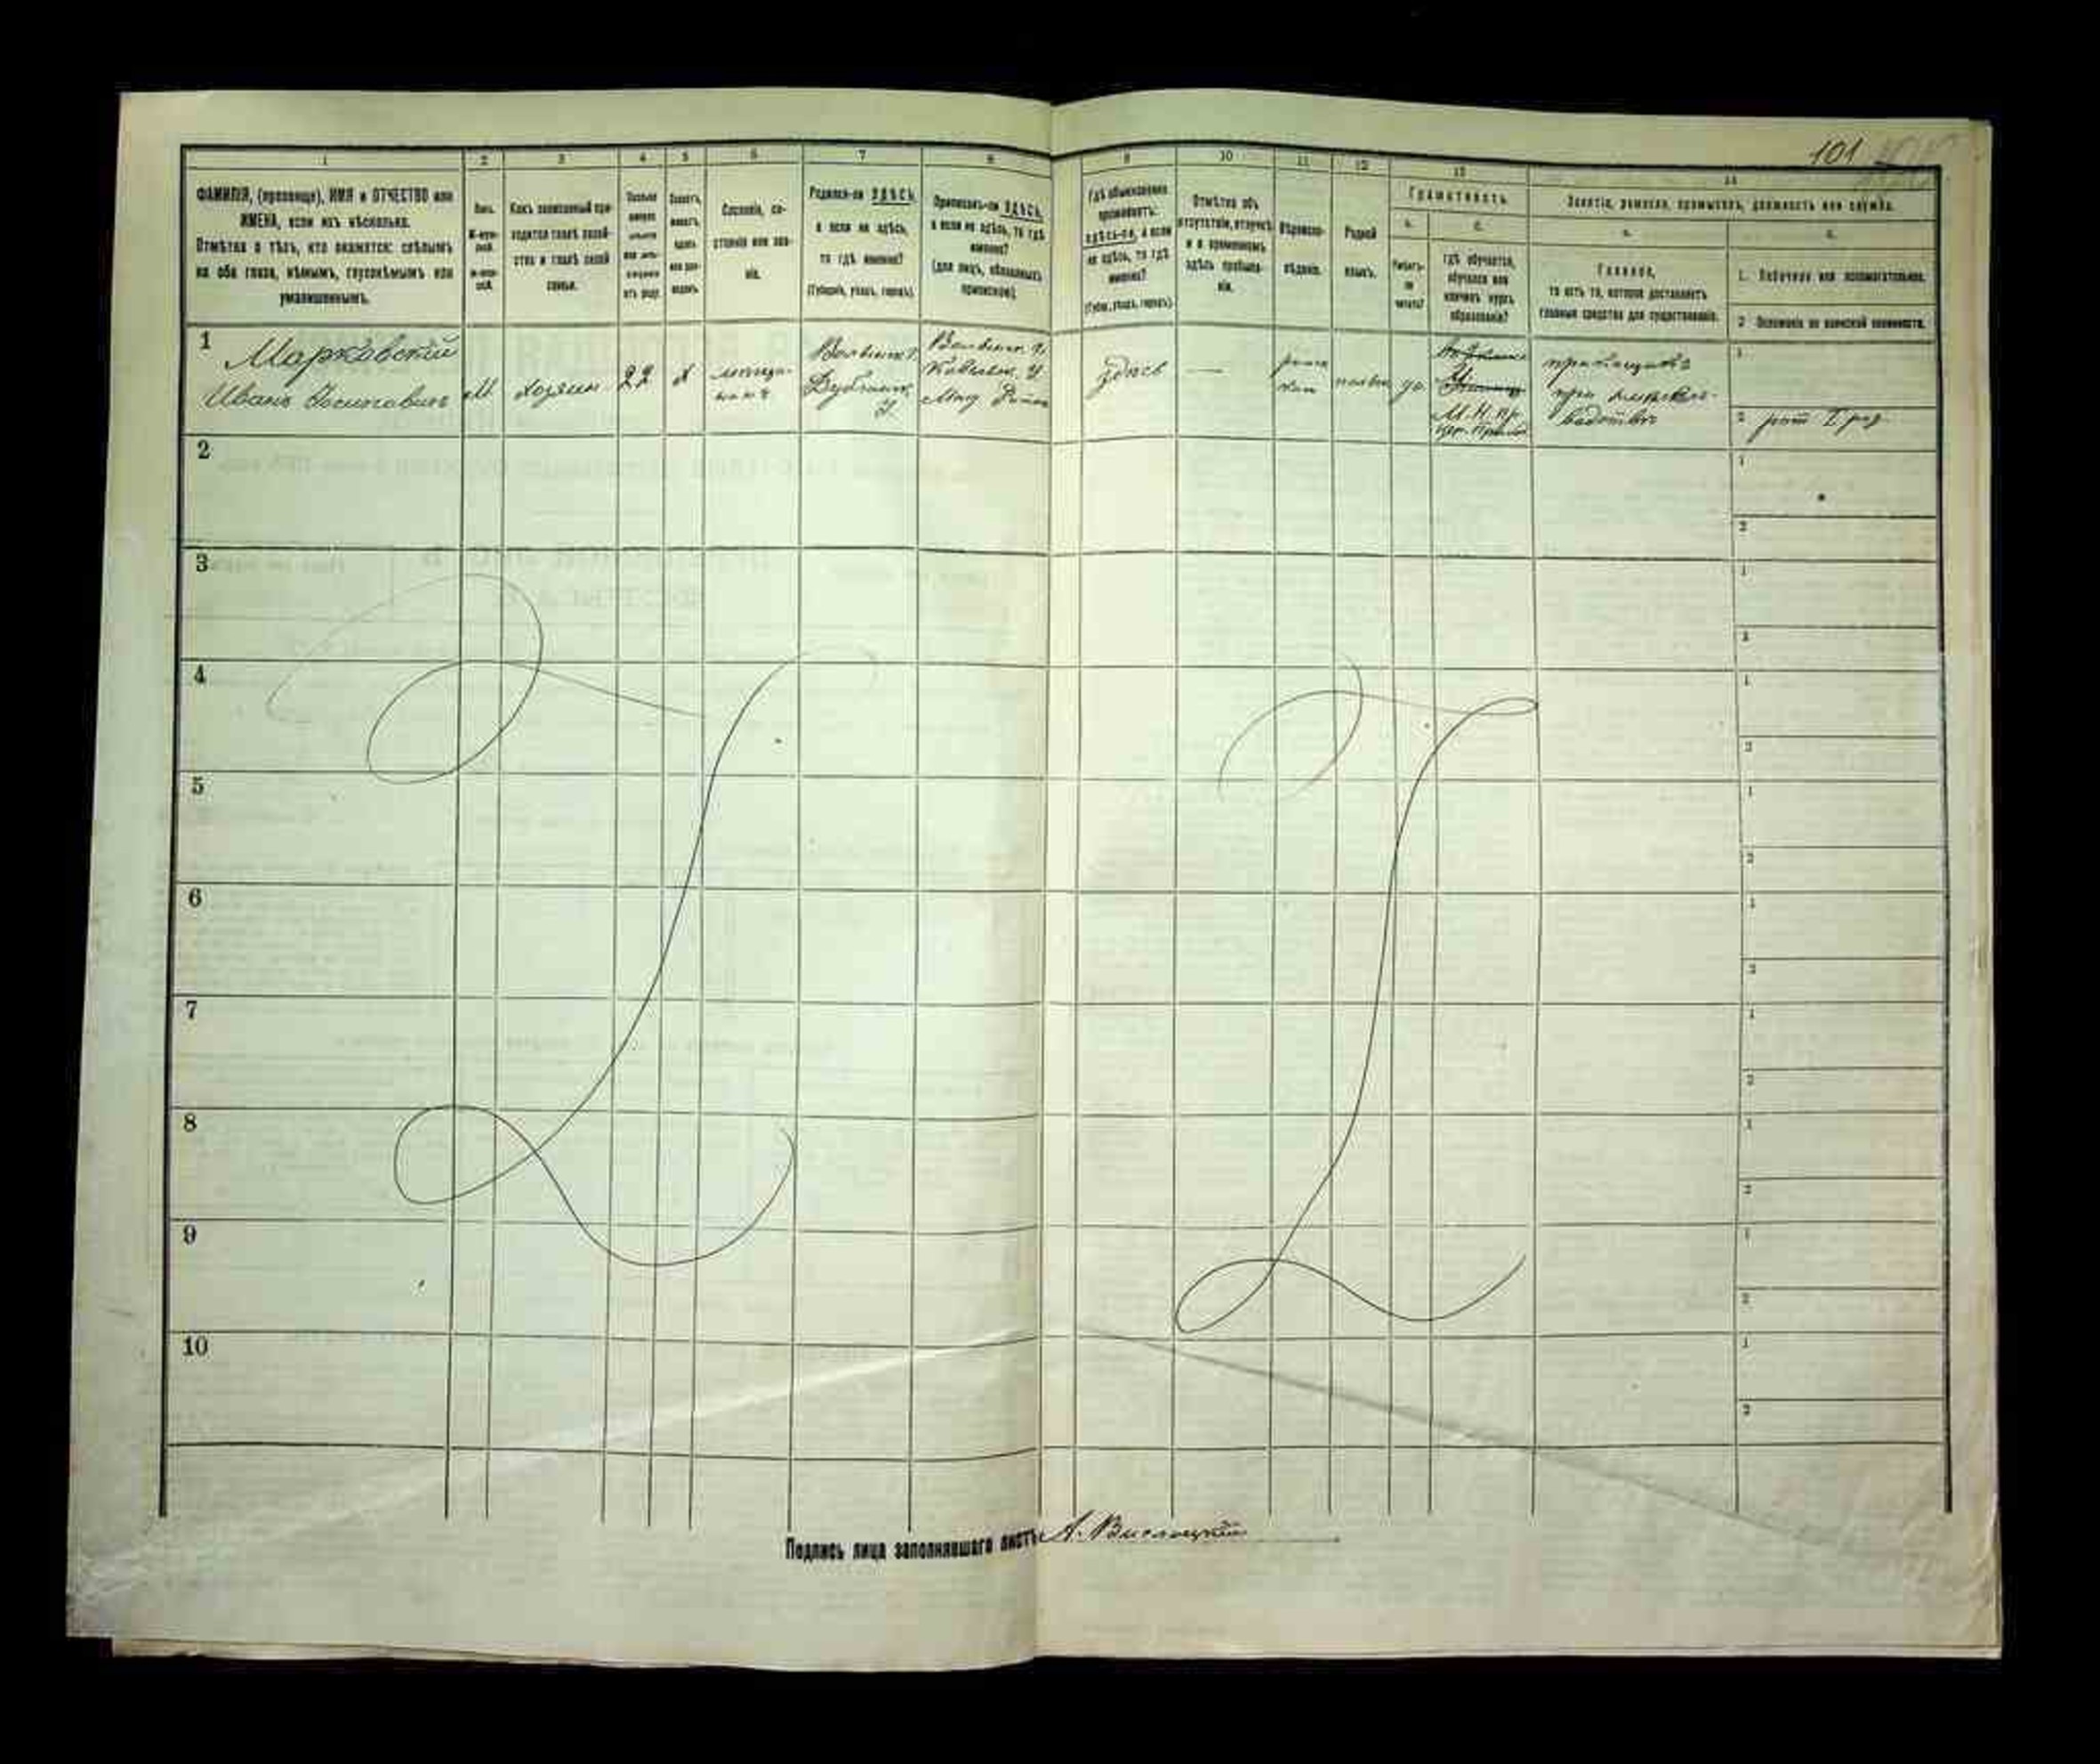 101
1 2 3 4 5 6 7 8 9 10 11 12 13 14
ФАМИЛІЯ, (прозвище), ИМЯ и ОТЧЕСТВО или
ИМЕНА, если ихъ нѣсколько.
Отмѣтка о тѣхъ, кто окажется: слѣпымъ
на оба глаза, нѣмымъ, глухонѣмымъ или
умалишеннымъ.
Полъ.
М-муж-
ской.
Ж-жен-
ской.
Какъ записанный при-
ходится главѣ хозяй-
ства и главѣ своей
семьи.
Сколько
минуло
лѣтъ
отъ роду.
Холостъ,
женатъ,
вдовъ
или раз-
веденъ.
Сословіе, со-
стояніе или зва-
ніе.
Родился-ли ЗДѢСЬ,
а если не здѣсь,
то гдѣ именно?
(Губернія, уѣздъ, городъ).
Приписанъ-ли ЗДѢСЬ,
а если не здѣсь, то гдѣ
именно?
(для лицъ, обязанныхъ
припискою).
Гдѣ обыкновенно
проживаетъ:
здѣсь-ли, а если
не здѣсь, то гдѣ
именно?
(Губ., уѣздъ, городъ).
Отмѣтка объ
отсутствіи, отлучкѣ
и о временномъ
здѣсь пребыва-
ніи.
Вѣроиспо-
вѣданіе.
Родной
языкъ.
Грамотность
а. б.
Умѣетъ-
ли
читать?
гдѣ обучается,
обучался или
кончилъ курсъ
образованія?
Занятіе, ремесло, промыселъ, должность или служба.
а. б.
Главное,
то есть то, которое доставляетъ
главныя средства для существованія.
1. Побочное или вспомогательное.
2 Положеніе по воинской повинности.
1
Марковскій
Иванъ Осиповичъ
М
хозяин
22
х
Волынск. г.
Дубенск.
у
Волынск. г.
Ковельск. у
здѣсь
—
да
М. Н. Пр.
приказщикъ
при
1
2
2
1
2
3
1
2
4
1
2
5
1
2
6
1
2
7
1
2
8
1
2
9
1
2
10
1
2
Подпись лица заполнявшаго листъ А. Вислоцкій